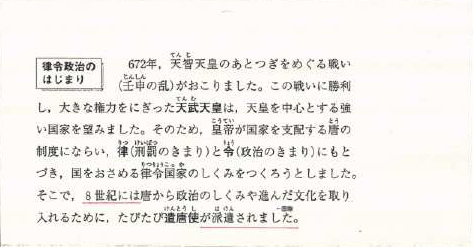 律令政治の
はじまり
672年，天智天皇のあとつぎをめぐる戦い
てんじ
(壬申の乱)がおこりました。この戦いに勝利
じんしん
し，大きな権力をにぎった天武天皇は，天皇を中心とする強
てんむ
い国家を望みました。そのため，皇帝が国家を支配する唐の
こうてい とう
制度にならい，律(刑罰のきまり)と令(政治のきまり)にもと
りつ けいばつ りょう
づき，国をおさめる律令国家のしくみをつくろうとしました。
りつりょうこっか
そこで，8世紀には唐から政治のしくみや進んだ文化を取り
入れるために，たびたび遣唐使が派遣されました。
けんとうし はけん